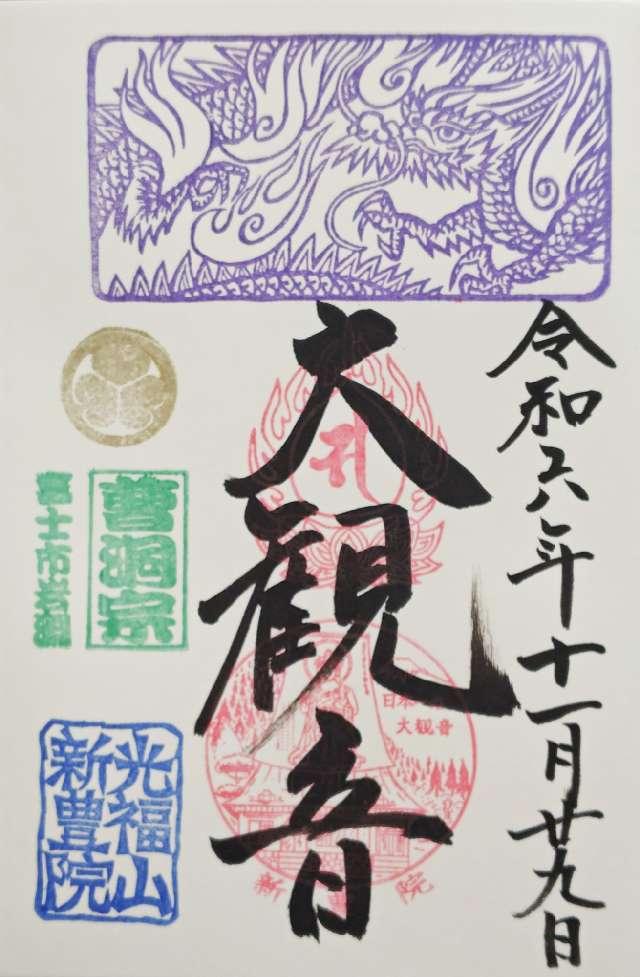 令和六年十一月廿九日
大観音
日本
大観音
新 院
曹洞宗
富士市岩淵
光福山
新豊院